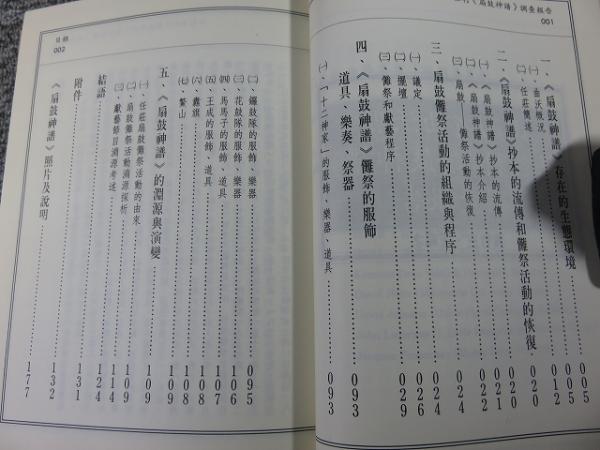 刊《扇鼓神譜》調查報告
001
一、《扇鼓神譜》存在的生態環境 005
㈠、曲沃概況 005
㈡、任莊簡述 012
二、《扇鼓神譜》抄本的流傳和儺祭活動的恢復 020
㈠、《扇鼓神譜》抄本的流傳 020
㈡、《扇鼓神譜》抄本介紹 021
㈢、扇鼓儺祭活動的恢復 022
三、扇鼓儺祭活動的組織與程序 024
㈠、議定 024
㈡、擺壇 026
㈢、儺祭和獻藝程序 029
四、《扇鼓神譜》儺祭的服飾
道具、樂奏、祭器 093
㈠、「十二神家」的服飾、樂器、道具 093
目錄
002
㈡、鑼鼓隊的服飾、樂器 095
㈢、花鼓隊的服飾、樂器 106
㈣、馬馬子的服飾、道具 107
㈤、王成的服飾、道具 108
㈥、纛旗 108
㈦、鰲山 109
五、《扇鼓神譜》的淵源與演變 109
㈠、任莊扇鼓儺祭活動的由來 109
㈡、扇鼓儺祭活動溯源探析 114
㈢、獻藝節目溯源考述 119
結語 124
附件 131
《扇鼓神譜》 132
圖片及說明 177